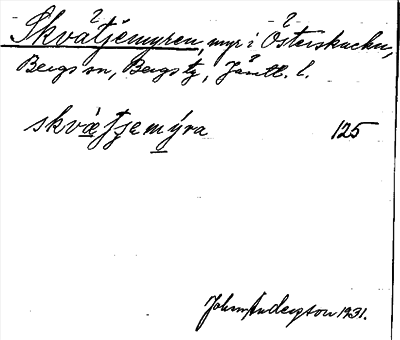 Skvätjemyren, myr i Österskucku,
Bergs sn, Bergs tg, Jämtl. l.
skvætjemýra 125
John Anderzson 1931.